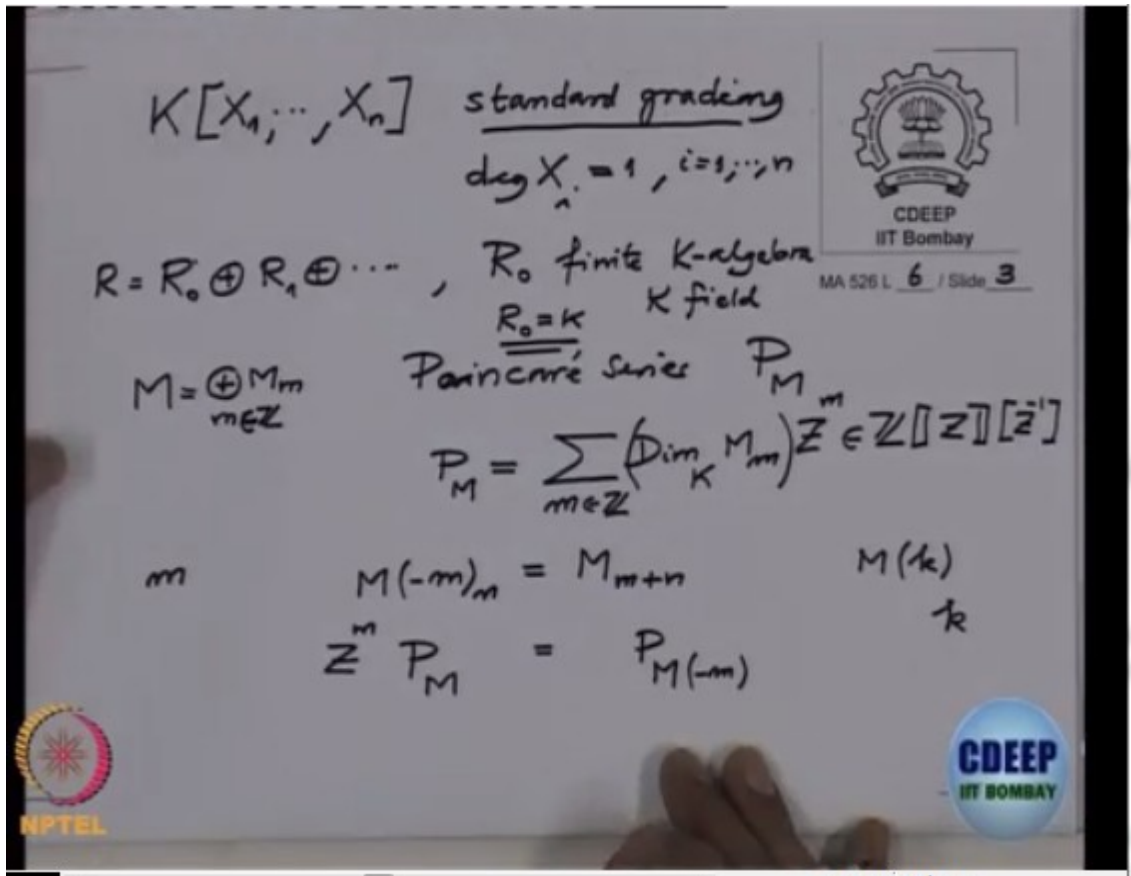 K[X₁,··,Xₙ] standard grading
deg Xᵢ = 1, i=1,··,n
CDEEP
IIT Bombay
MA 526 L 6 / Slide 3
R = R₀ ⊕ R₁ ⊕ ····, R₀ finite K-algebra
K field
R₀ = K
M = ⊕ Mₘ Poincaré series P_M
m∈ℤ
P_M = ∑ (Dim_K Mₘ) Zᵐ ∈ ℤ[[Z]][Z⁻¹]
m∈ℤ
m M(-m)ₙ = M_{m+n} M(k)
k
Zᵐ P_M = P_{M(-m)}
NPTEL
CDEEP
IIT BOMBAY